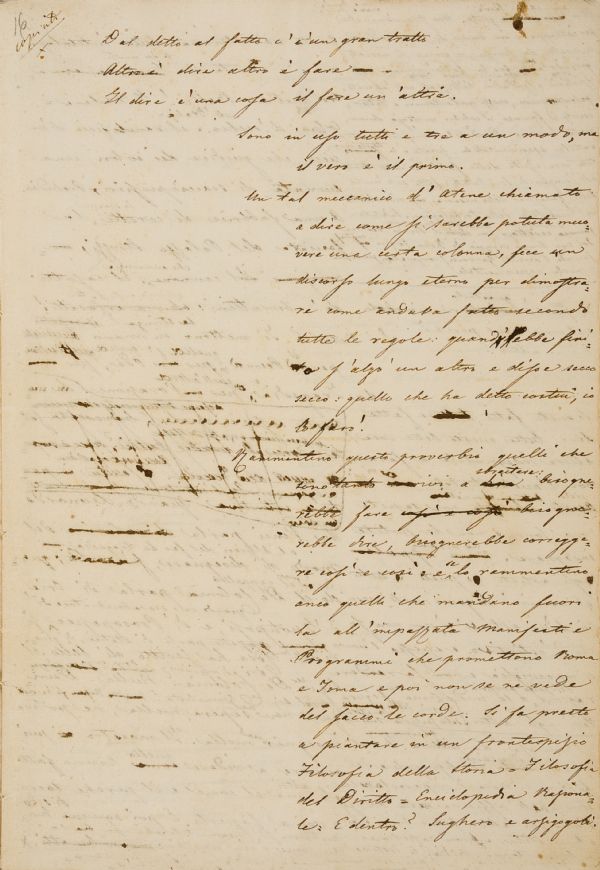 16
copiato
Dal detto al fatto c'è un gran tratto
Altro è dire altro è fare
Il dire è una cosa il fare un'altra.
Sono in uso tutti e tre a un modo, ma
il vero è il primo.
Un tal meccanico d'Atene chiamato
a dire come si sarebbe potuta muo-
vere una certa colonna, fece un
discorso lungo eterno per dimostra-
re come andava fatto secondo
tutte le regole: quand' ebbe fini-
to s'alzò un altro e disse secco
secco: quello che ha detto costui, io
lo farò!
Rammentino questo proverbio quelli che
sono tanto a sbraitare: bisogne-
rebbe fare così e così bisogne-
rebbe dire, bisognerebbe corregge-
re così e così: e lo rammentino
anco quelli che mandano fuori
la all'impazzata Manifesti e
Programmi che promettono Roma
e Toma e poi non se ne vede
del sacco le corde. Si fa presto
a piantare in un frontespizio
Filosofia della Storia = Filosofia
del Diritto = Enciclopedia Raziona-
le = E dentro? Sughero e arzigogoli.